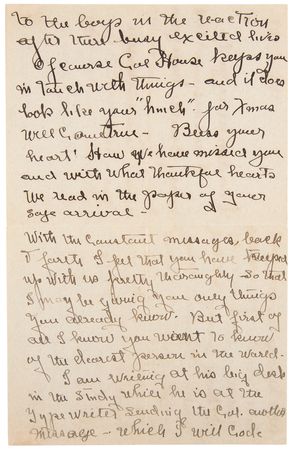 to the boys in the reaction
after their busy excited lives
Of course Col House keeps you
in touch with things - and it does
look like your "hunch" for Xmas
will come true - Bless your
heart! How we have missed you
and with what thankful hearts
we read in the paper of your
safe arrival -
With the constant messages back
& forth I feel that you have keeped
up with us pretty thoroughly - so that
I may be giving you only things
you already know. But first of
all I know you want to know
of the dearest person in the world -
I am writing at his big desk
in the Study while he is at the
typewriter sending the Col. another
message - which I will Code